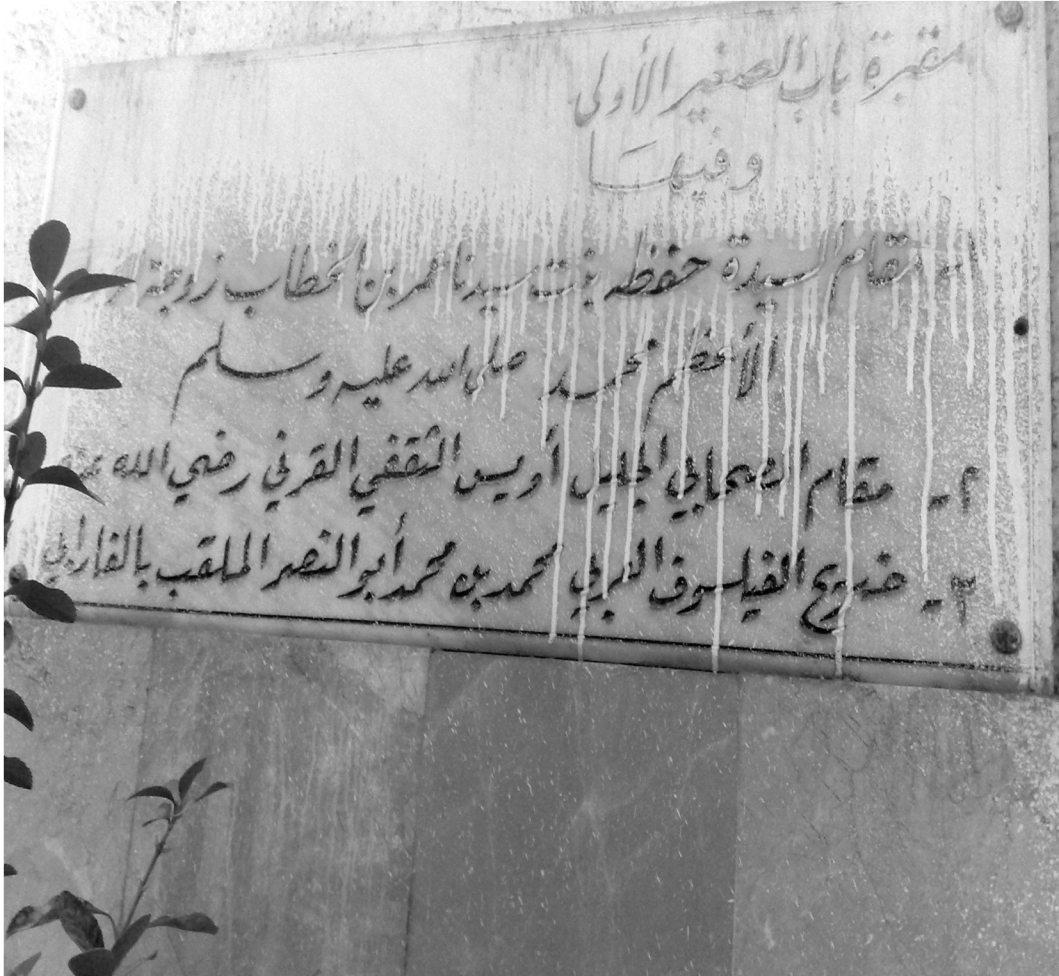 مقبرة باب الصغير الأولى
وفيها
١- مقام السيدة حفظه بنت سيدنا عمر بن الخطاب زوجة
الأعظم محمد صلى الله عليه وسلم
٢- مقام الصحابي الجليل أويس الثقفي القرني رضي الله عنه
٣- ضريح الفيلسوف العربي محمد بن محمد أبو النصر الملقب بالفارابي